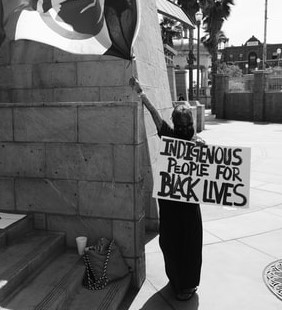 INDIGENOUS
PEOPLE FOR
BLACK LIVES